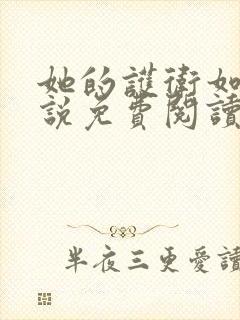 她的護衛如
說免費閱讀
半夜三更愛讀